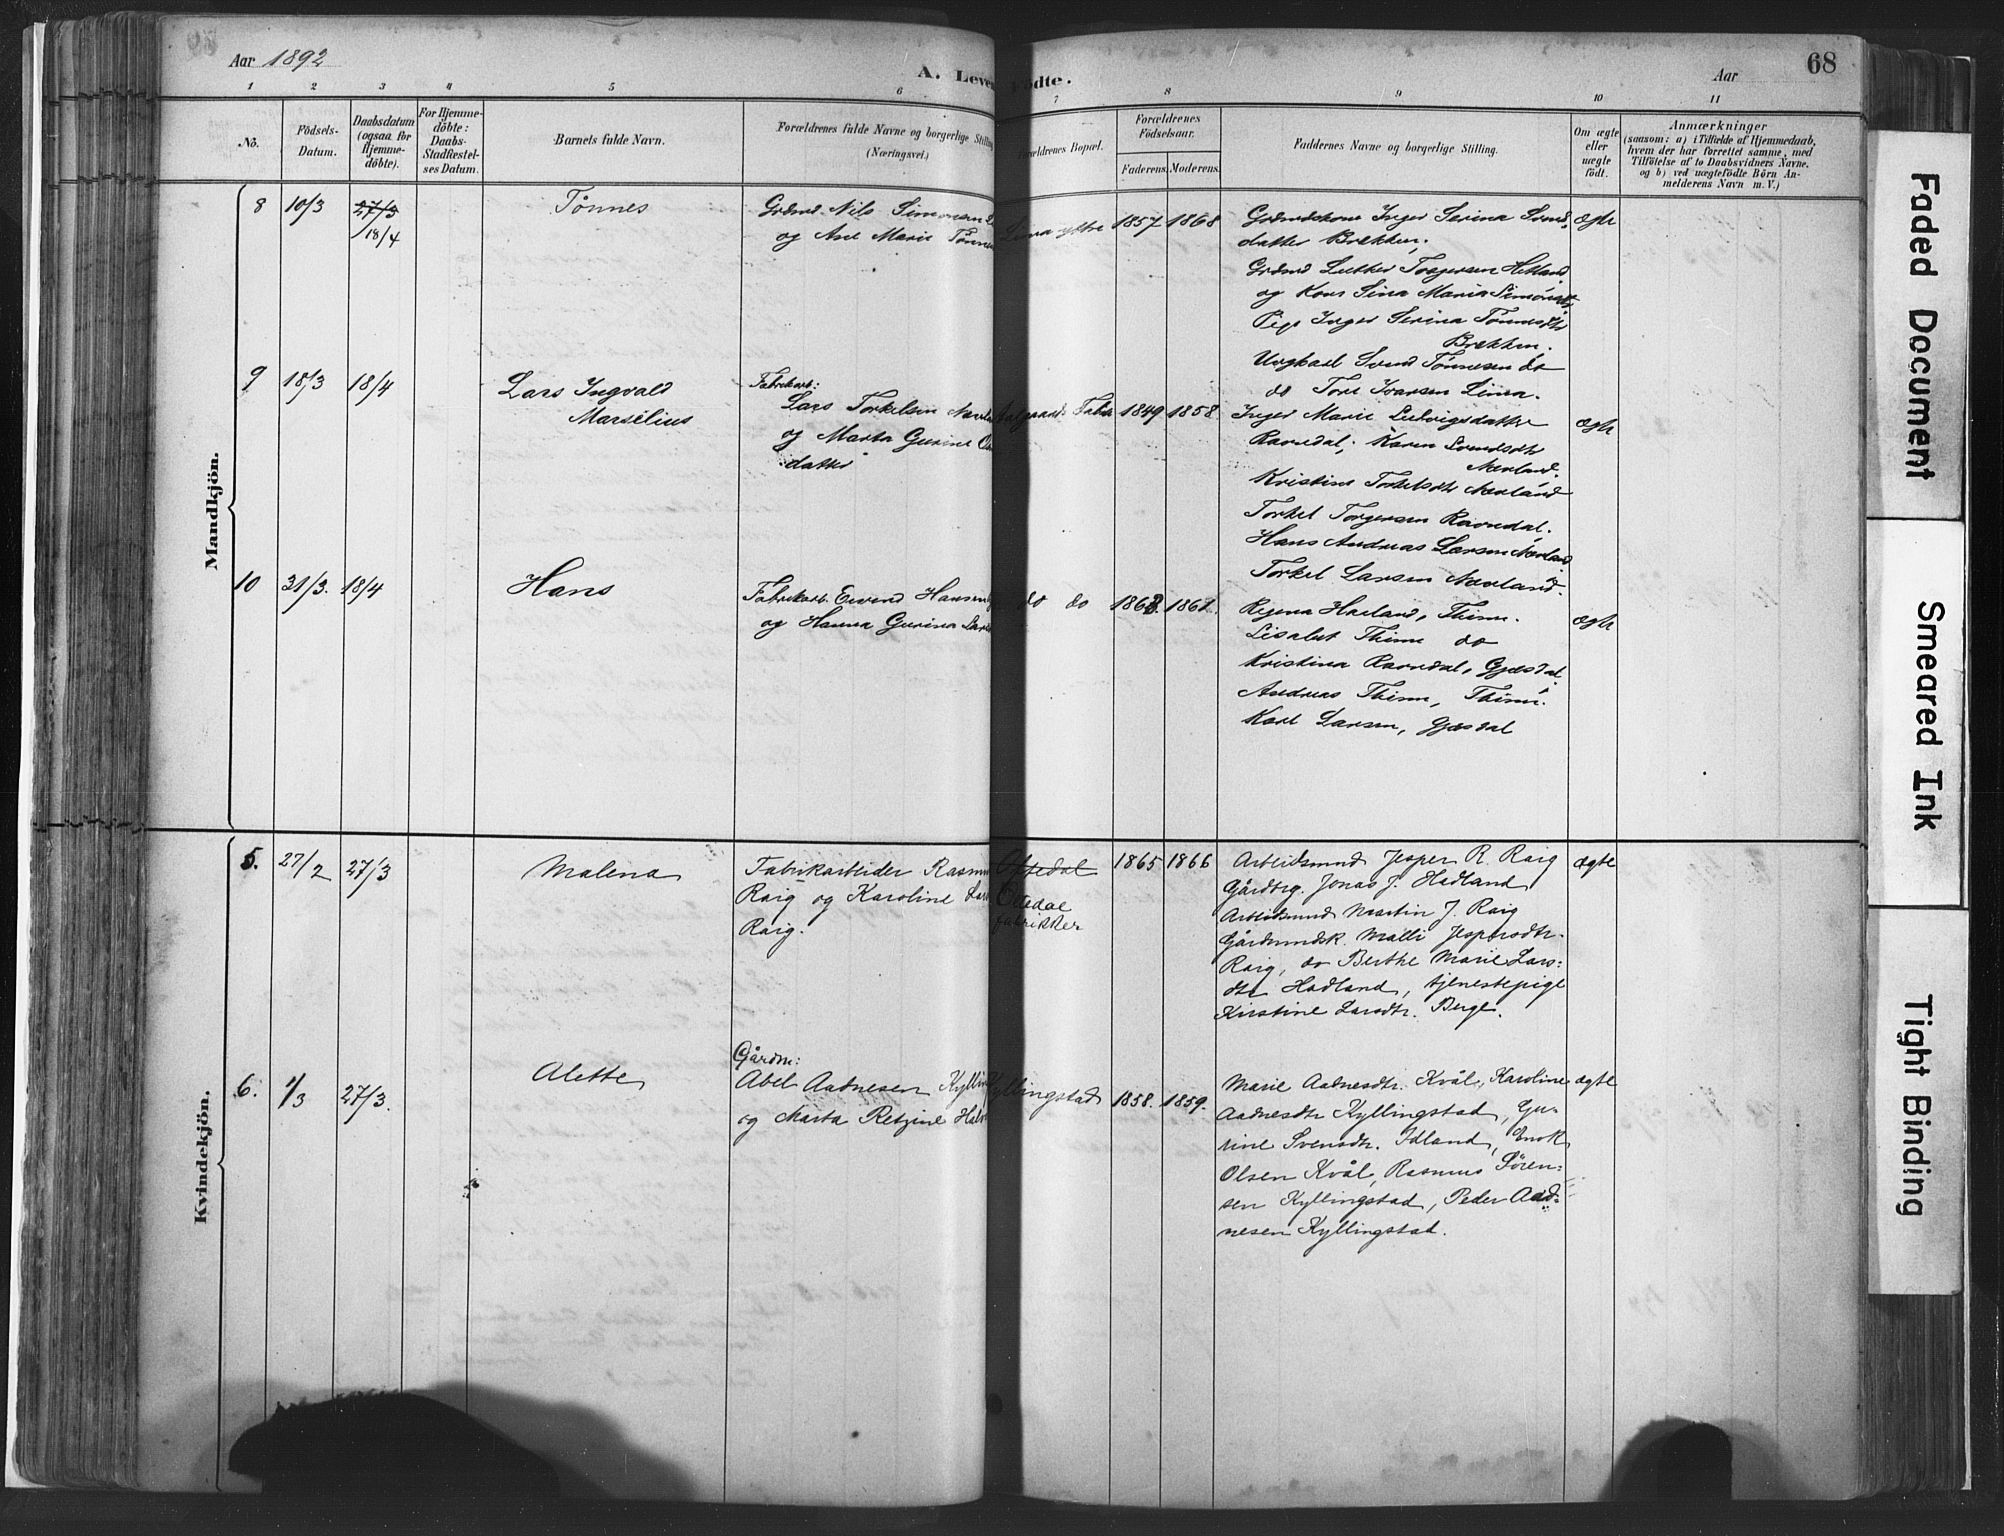 Aar 1892
A. Leve
ödte.
Aar
68
1 2 3 4 5 6 7 8 9 10 11
No.
Födsels-
Datum.
Daabsdatum
(ogsaa for
Hjemme-
döbte).
For Hjemme-
döbte:
Daabs-
Stadfæstel-
ses Datum.
Barnets fulde Navn.
Forældrenes fulde Navne og borgerlige Stilling
(Næringsvei.)
orældrenes Bopæl.
Forældrenes
Födselsaar.
Faderens. Moderens.
Faddernes Navne og borgerlige Stilling.
Om ægte
eller
uægte
födt.
Anmærkninger
(saasom: a) i Tilfælde af Hjemmedaab,
hvem der har forrettet samme, med
Tilföielse af to Daabsvidners Navne.
og b) ved uægtefödte Börn An-
melderens Navn m. V.)
Mandkjön.
8
10/3
27/3
18/4
Tönnes
Grdmd. Nils Simonsen
og Ane Marie Tönnes
Lima ytre
1857
1868
Grdmdskone Inger Serina Svends
datter Brekken,
Grdmd Lutker Torgersen Hetland
og Kone Sina Maria Simonsdtr
Pige Inger Serina Tönnesdtr
Brekken.
Ungkarl Svend Tönnesen do
do Tore Ivarsen Lima.
ægte
9
18/3
18/4
Lars Ingvald
Marselius
Fabrikarb:
Lars Torkelsen
og Marta Gurine
datter
Aalgaards Fabr
1849
1858
Inger Marie Ludvigsdatter
Ravndal, Karen Svendsdtr
Nærland.
Kristine Torkelsdtr Nærland
Torkel Torgersen Ravndal.
Hans Andreas Larsen Nærland
Torkel Larsen Nærland.
ægte
10
31/3.
18/4
Hans
Fabrikarb. Eivind Hansen
og Hanna Gurina
do do
1863
1867.
Regina Haaland, Thime.
Lisabet Thime do
Kristina Ravndal, Gjæsdal.
Andreas Thime, Thime.
Karl Larsen, Gjæsdal
ægte
Kvindekjön.
5.
27/2
27/3
Malena
Fabrikarbeider Rasm
Raig og Karoline Lar
Raig.
Oftedal
Oltedal
fabrikker
1865
1866
Arbeidsmnd Jesper R. Raig
Gårdbrg. Jonas J. Hadland
Arbeidsmnd Martin J. Raig
Gårdmndsk. Malli Jespersdtr.
Raig, do Berthe Marie Lars:
dtr Hadland, tjenestepige
Kirstine Larsdtr. Berge.
ægte
6.
1/3
27/3.
Alette
Gårdm:
Abel Aadnesen Kylling
og Marta Retzine
Kyllingstad
1858.
1859.
Marie Aadnesdtr. Kvål, Karoline
Aadnesdtr Kyllingstad, Gu-
rine Svensdtr. Idland, Enok
Olsen Kvål, Rasmus Sören-
sen Kyllingstad, Peder Aad-
nesen Kyllingstad.
ægte
Faded Document
Smeared Ink
Tight Binding